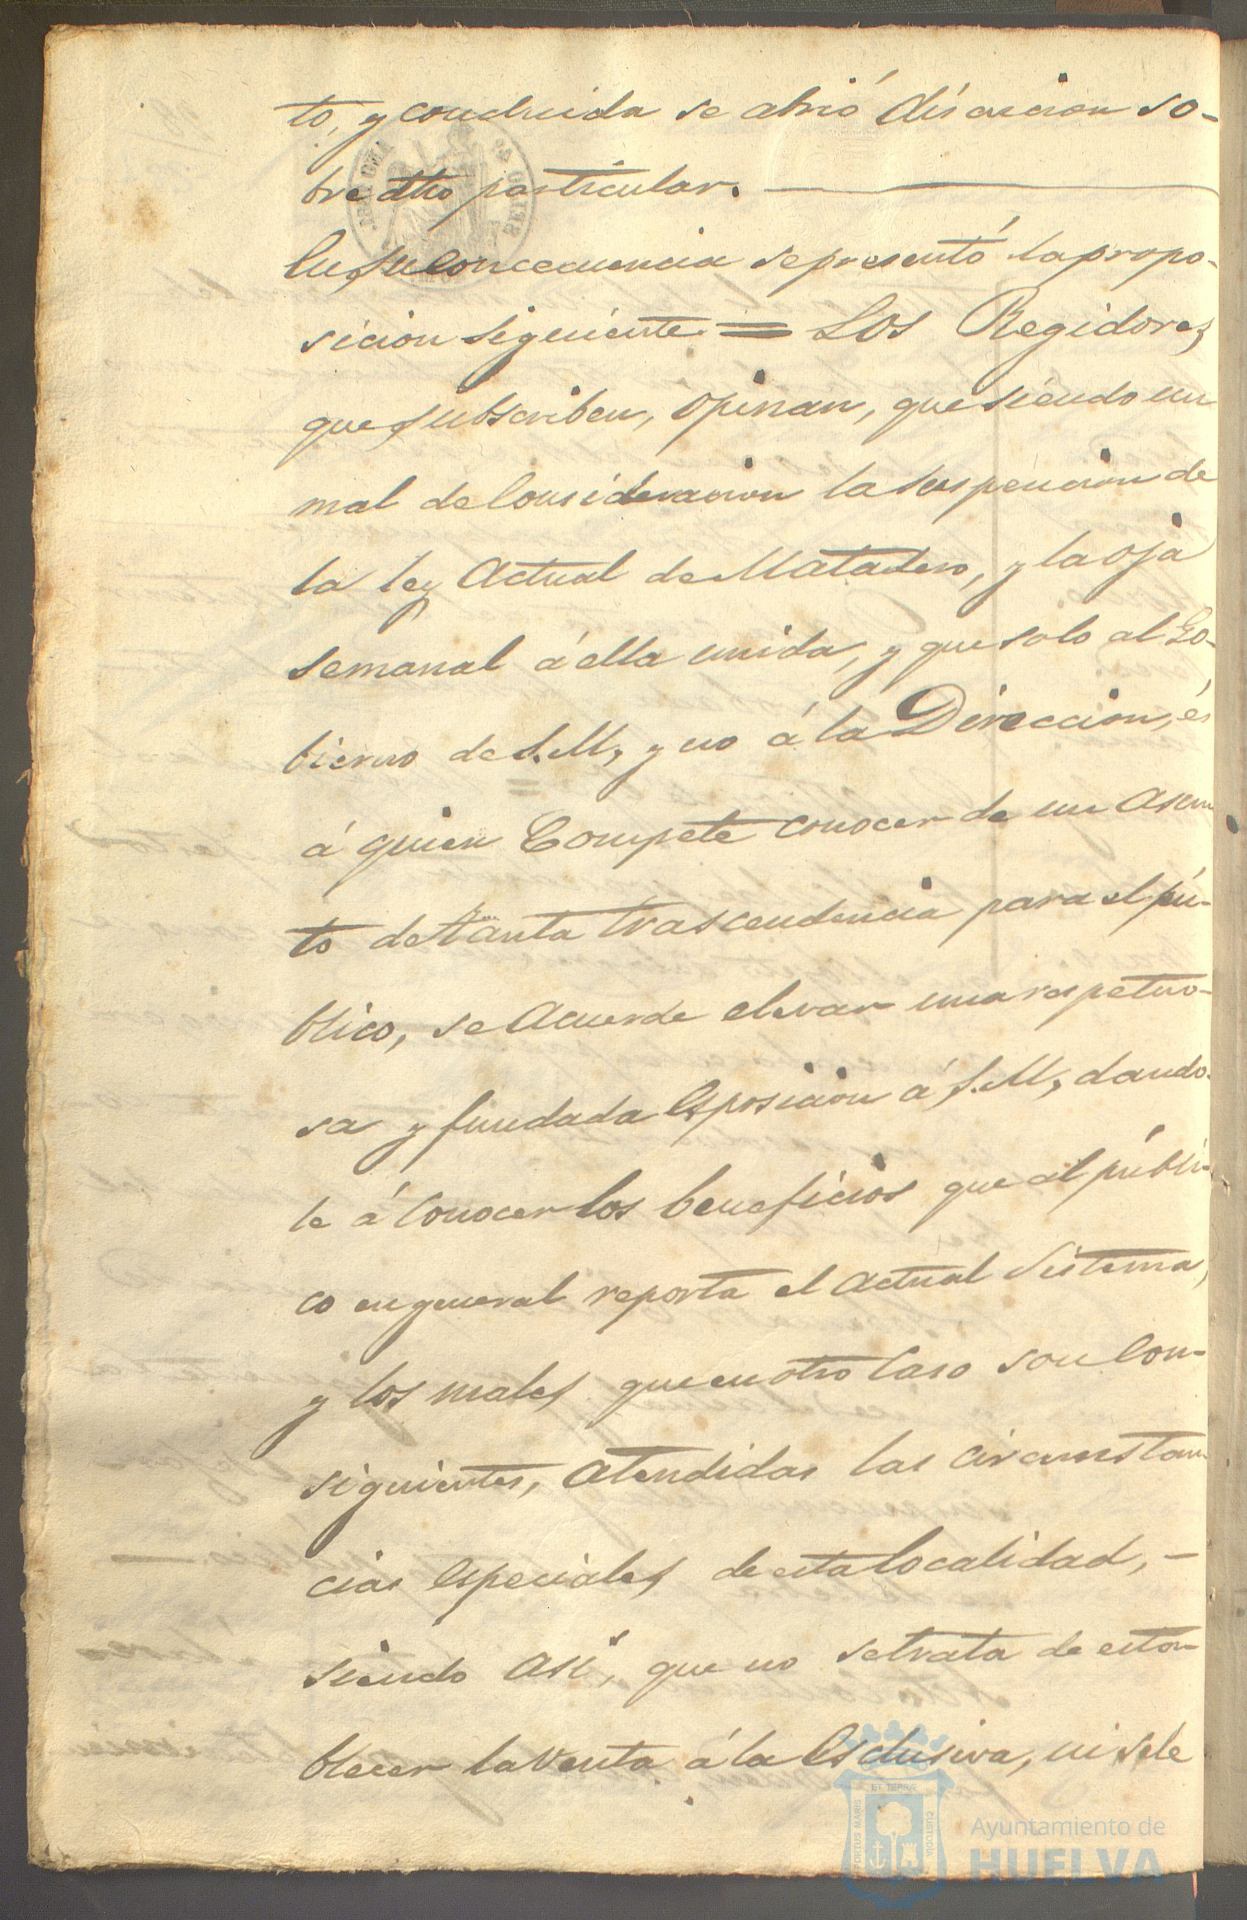 to, y concluida se abrió discucion so-
bre dho particular.
En su concecuencia se presentó la propo-
sicion sigeuiente = Los Regidores
que subscriben, opinan, que siendo un
mal de Consideracion la suspencion de
la ley Actual de Matadero, y la oja
semanal á ella unida, y que solo al Go-
bierno de S.M, y no á la Direccion, és
á quien Compete conocer de un Asun
to de tanta trascendencia para el pú-
blico, se Acuerde elevar una respetuo-
sa y fundada Esposicion á S.M, dando-
le á Conocer los beneficios que al públi-
co en general reporta el actual Sistema,
y los males que en otro Caso son Con-
siguientes, Atendidas las circunstan
cias especiales de esta localidad, -
siendo Así, que no se trata de esta-
blecer la Venta á la Esclusiva, ni se le
PORTUS MARIS ET TERRAE CUSTODIA
Ayuntamiento de
HUELVA